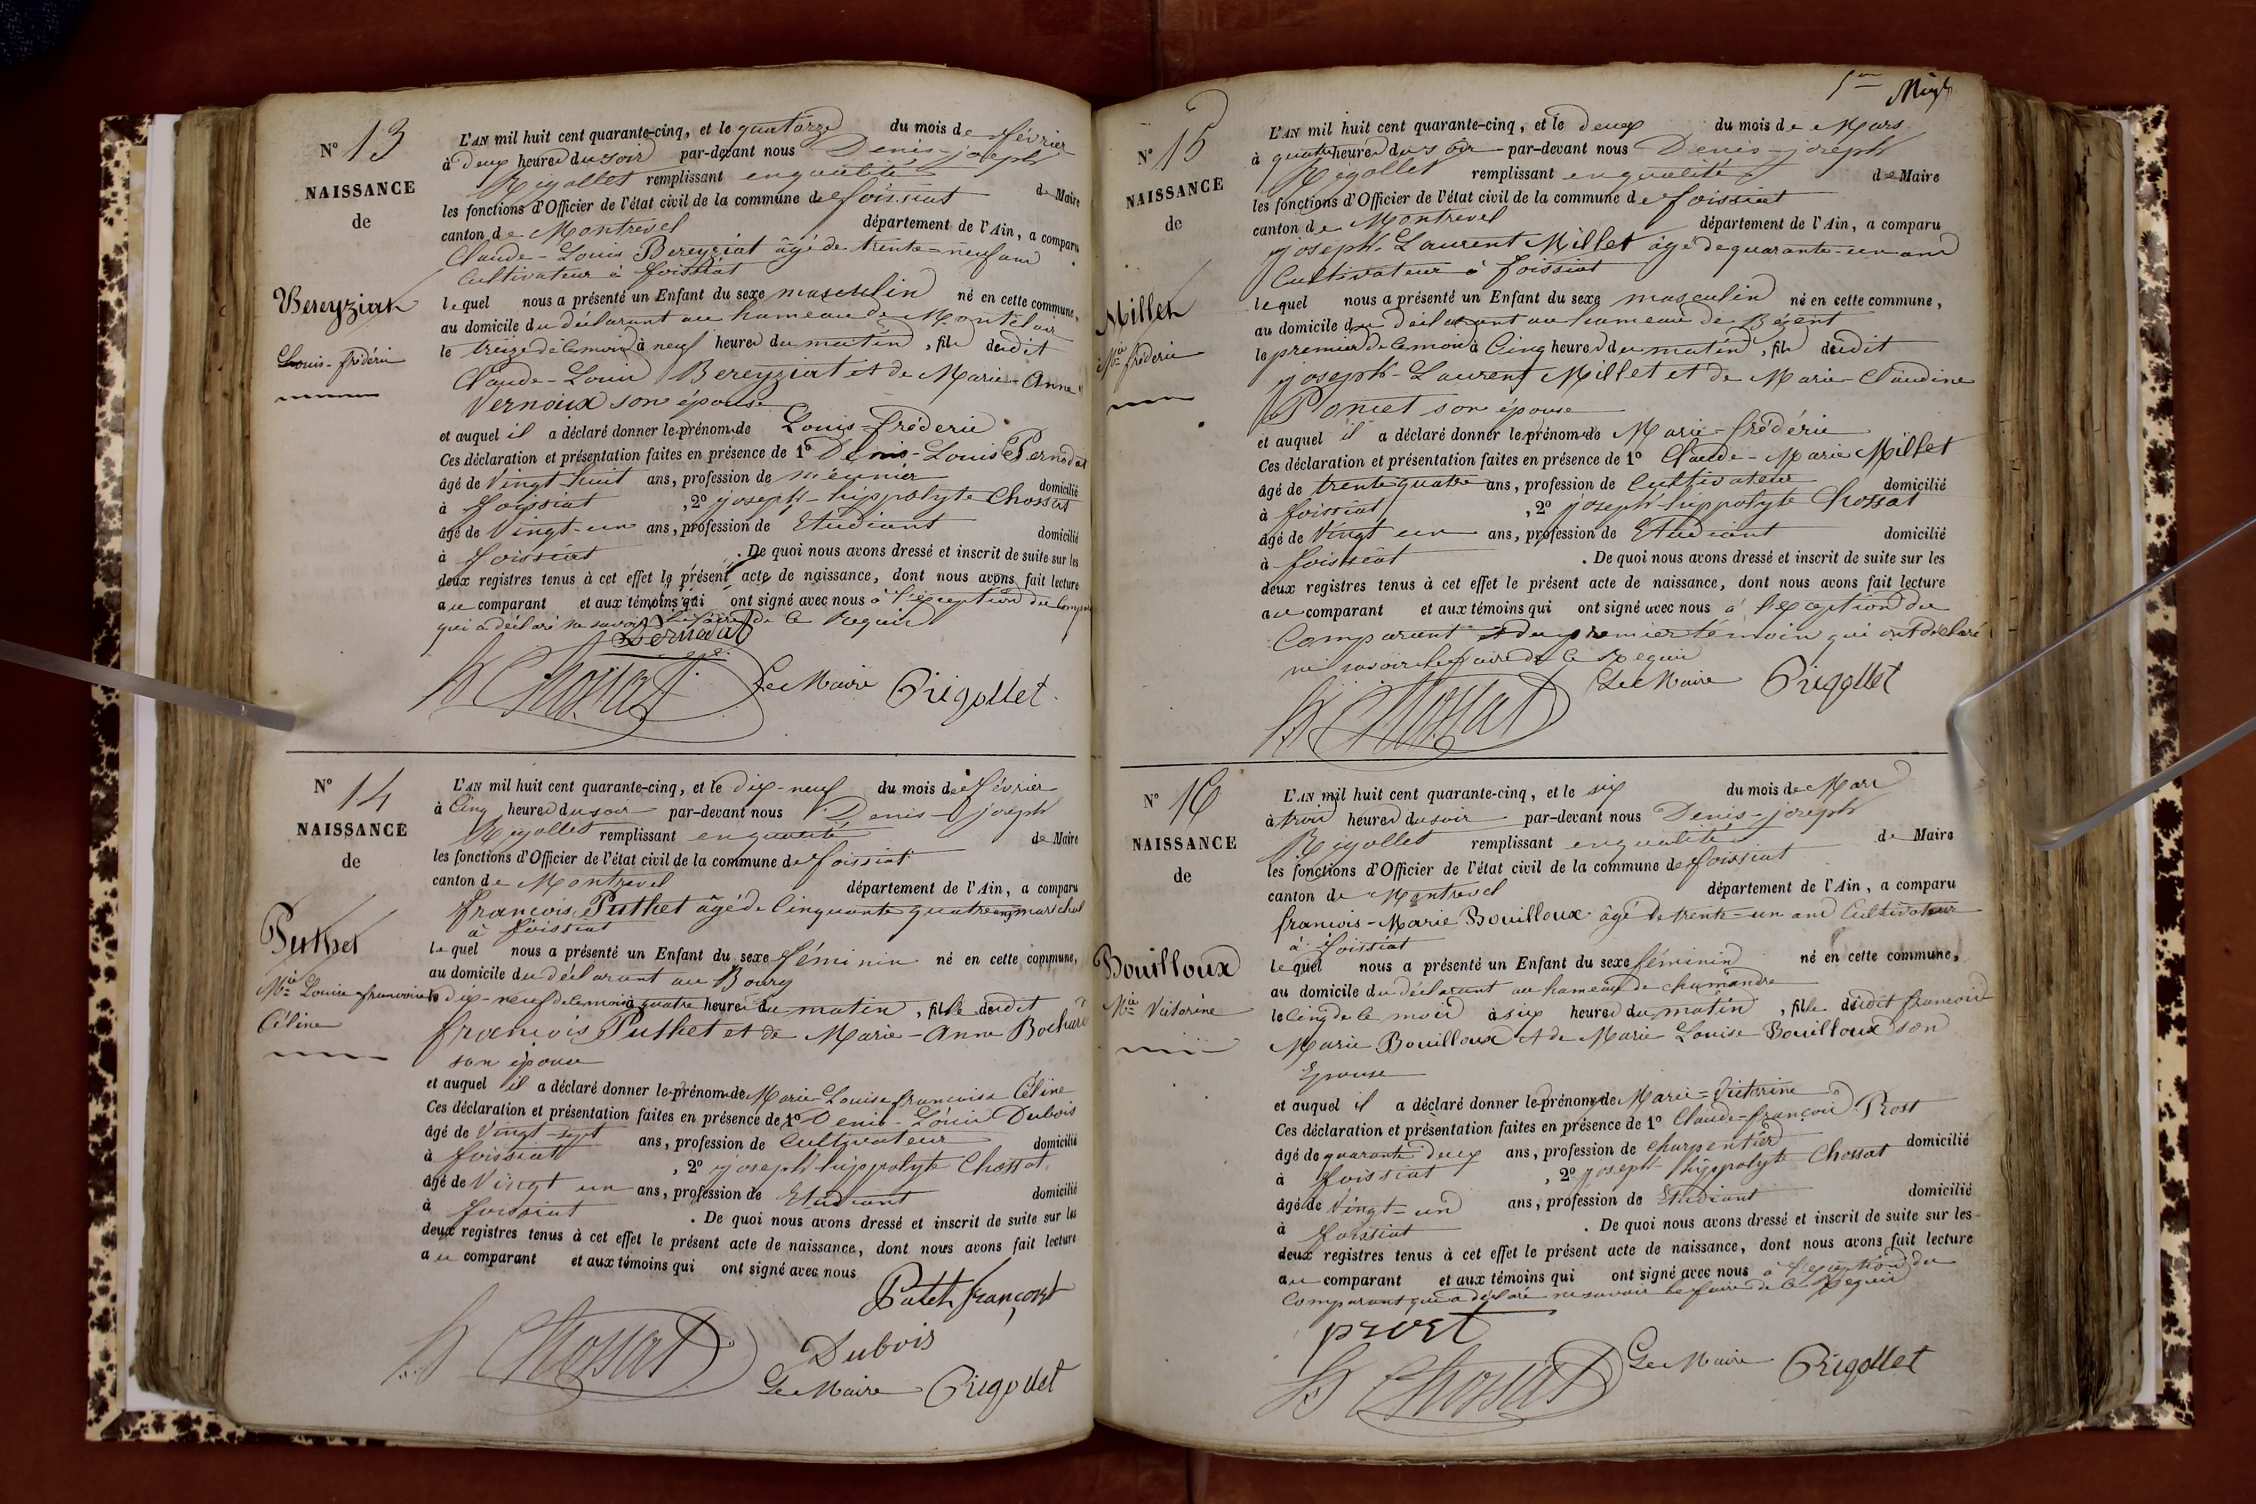 N° 13
NAISSANCE
de
Bereyziat
Louis-frédéric
L'AN mil huit cent quarante-cinq, et le quatorze du mois de février
à deux heures du soir par-devant nous Denis-joseph
Rigollet remplissant en qualité de Maire
les fonctions d'Officier de l'état civil de la commune de foissiat
canton de Montrevel département de l'Ain, a comparu
Claude-Louis Bereyziat âgé de trente-neuf ans
Cultivateur à foissiat
lequel nous a présenté un Enfant du sexe masculin né en cette commune,
au domicile du déclarant au hameau de Montélar
le treize de ce mois à neuf heures du matin, fils dudit
Claude-Louis Bereyziat et de Marie-Anne
Vernoux son épouse
et auquel il a déclaré donner le prénom de Louis-frédéric
Ces déclaration et présentation faites en présence de 1° Denis-Louis Pernodat
âgé de Vingt-huit ans, profession de meunier domicilié
à foissiat, 2° joseph-hippolyte Chossat
âgé de Vingt-un ans, profession de Etudiant domicilié
à foissiat. De quoi nous avons dressé et inscrit de suite sur les
deux registres tenus à cet effet le présent acte de naissance, dont nous avons fait lecture
au comparant et aux témoins qui ont signé avec nous à l'exception du comparant
qui a déclaré ne savoir le faire de ce Requis
Pernodat
h Chossat Le Maire Rigollet
N° 14
NAISSANCE
de
Puthet
Mie Louise françoise
Céline
L'AN mil huit cent quarante-cinq, et le dix-neuf du mois de février
à Cinq heures du soir par-devant nous Denis-joseph
Rigollet remplissant en qualité de Maire
les fonctions d'Officier de l'état civil de la commune de foissiat
canton de Montrevel département de l'Ain, a comparu
françois Puthet âgé de Cinquante quatre ans maréchal
à foissiat
lequel nous a présenté un Enfant du sexe féminin né en cette commune,
au domicile du déclarant au Bourg
le dix-neuf de ce mois à quatre heures du matin, fille dudit
françois Puthet et de Marie-Anne Bochard
son épouse
et auquel il a déclaré donner le prénom de Marie Louise françoise Céline
Ces déclaration et présentation faites en présence de 1° Denis-Louis Dubois
âgé de Vingt-sept ans, profession de Cultivateur domicilié
à foissiat, 2° joseph hippolyte Chossat
âgé de Vingt un ans, profession de Etudiant domicilié
à foissiat. De quoi nous avons dressé et inscrit de suite sur les
deux registres tenus à cet effet le présent acte de naissance, dont nous avons fait lecture
au comparant et aux témoins qui ont signé avec nous
Putet françois
h Chossat Dubois
Le Maire Rigollet
N° 15
NAISSANCE
de
Millet
Mie frédéric
L'AN mil huit cent quarante-cinq, et le deux du mois de Mars
à quatre heures du soir par-devant nous Denis-joseph
Rigollet remplissant en qualité de Maire
les fonctions d'Officier de l'état civil de la commune de foissiat
canton de Montrevel département de l'Ain, a comparu
joseph-Laurent Millet âgé de quarante-un ans
Cultivateur à foissiat
lequel nous a présenté un Enfant du sexe masculin né en cette commune,
au domicile du déclarant au hameau de Bézent
le premier de ce mois à Cinq heures du matin, fils dudit
joseph-Laurent Millet et de Marie-Claudine
Poncet son épouse
et auquel il a déclaré donner le prénom de Marie-frédéric
Ces déclaration et présentation faites en présence de 1° Claude-Marie Millet
âgé de trente quatre ans, profession de Cultivateur domicilié
à foissiat, 2° joseph-hippolyte Chossat
âgé de Vingt un ans, profession de Etudiant domicilié
à foissiat. De quoi nous avons dressé et inscrit de suite sur les
deux registres tenus à cet effet le présent acte de naissance, dont nous avons fait lecture
au comparant et aux témoins qui ont signé avec nous à l'exception du
Comparant et du premier témoin qui ont déclaré
ne savoir le faire de ce Requis
h Chossat Le Maire Rigollet
N° 16
NAISSANCE
de
Bouilloux
Mie Victorine
L'AN mil huit cent quarante-cinq, et le six du mois de Mars
à trois heures du soir par-devant nous Denis-joseph
Rigollet remplissant en qualité de Maire
les fonctions d'Officier de l'état civil de la commune de foissiat
canton de Montrevel département de l'Ain, a comparu
françois-Marie Bouilloux âgé de trente-un ans Cultivateur
à foissiat
lequel nous a présenté un Enfant du sexe féminin né en cette commune,
au domicile du déclarant au hameau de chamandre
le Cinq de ce mois à six heures du matin, fille dudit françois
Marie Bouilloux et de Marie Louise Bouilloux son
Epouse
et auquel il a déclaré donner le prénom de Marie-Victorine
Ces déclaration et présentation faites en présence de 1° Claude-françois Prost
âgé de quarante deux ans, profession de charpentier domicilié
à foissiat, 2° joseph hippolyte Chossat
âgé de Vingt-un ans, profession de Etudiant domicilié
à foissiat. De quoi nous avons dressé et inscrit de suite sur les
deux registres tenus à cet effet le présent acte de naissance, dont nous avons fait lecture
au comparant et aux témoins qui ont signé avec nous à l'exception du
Comparant qui a déclaré ne savoir le faire de ce Requis
prost
h Chossat Le Maire Rigollet